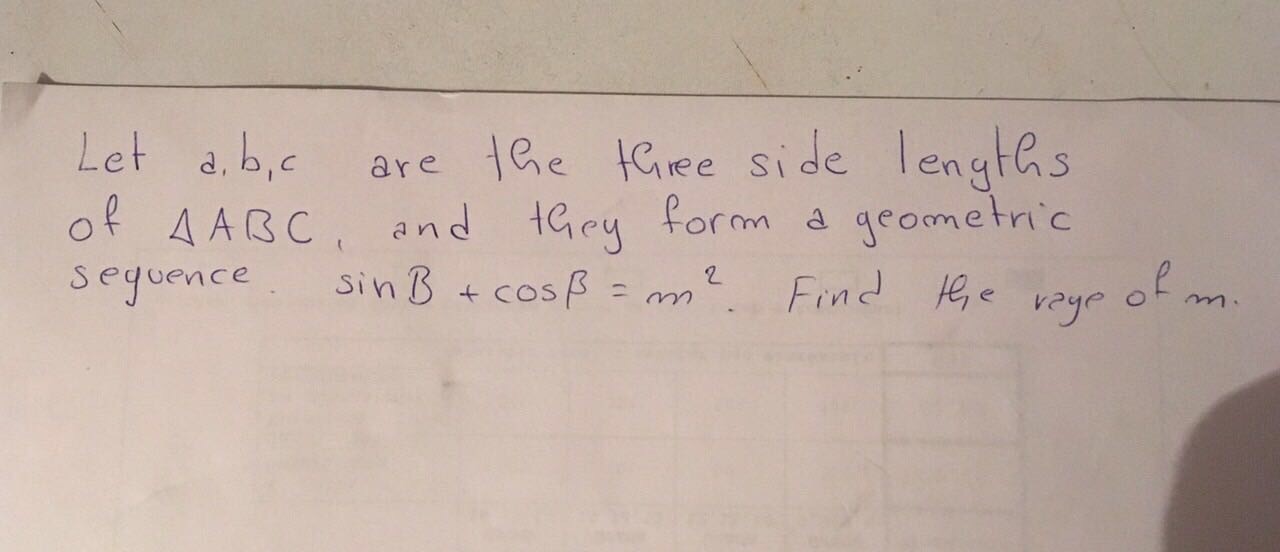 Let a,b,c are the three side lengths
of ΔABC, and they form a geometric
sequence. sinB + cosβ = m². Find the of m.